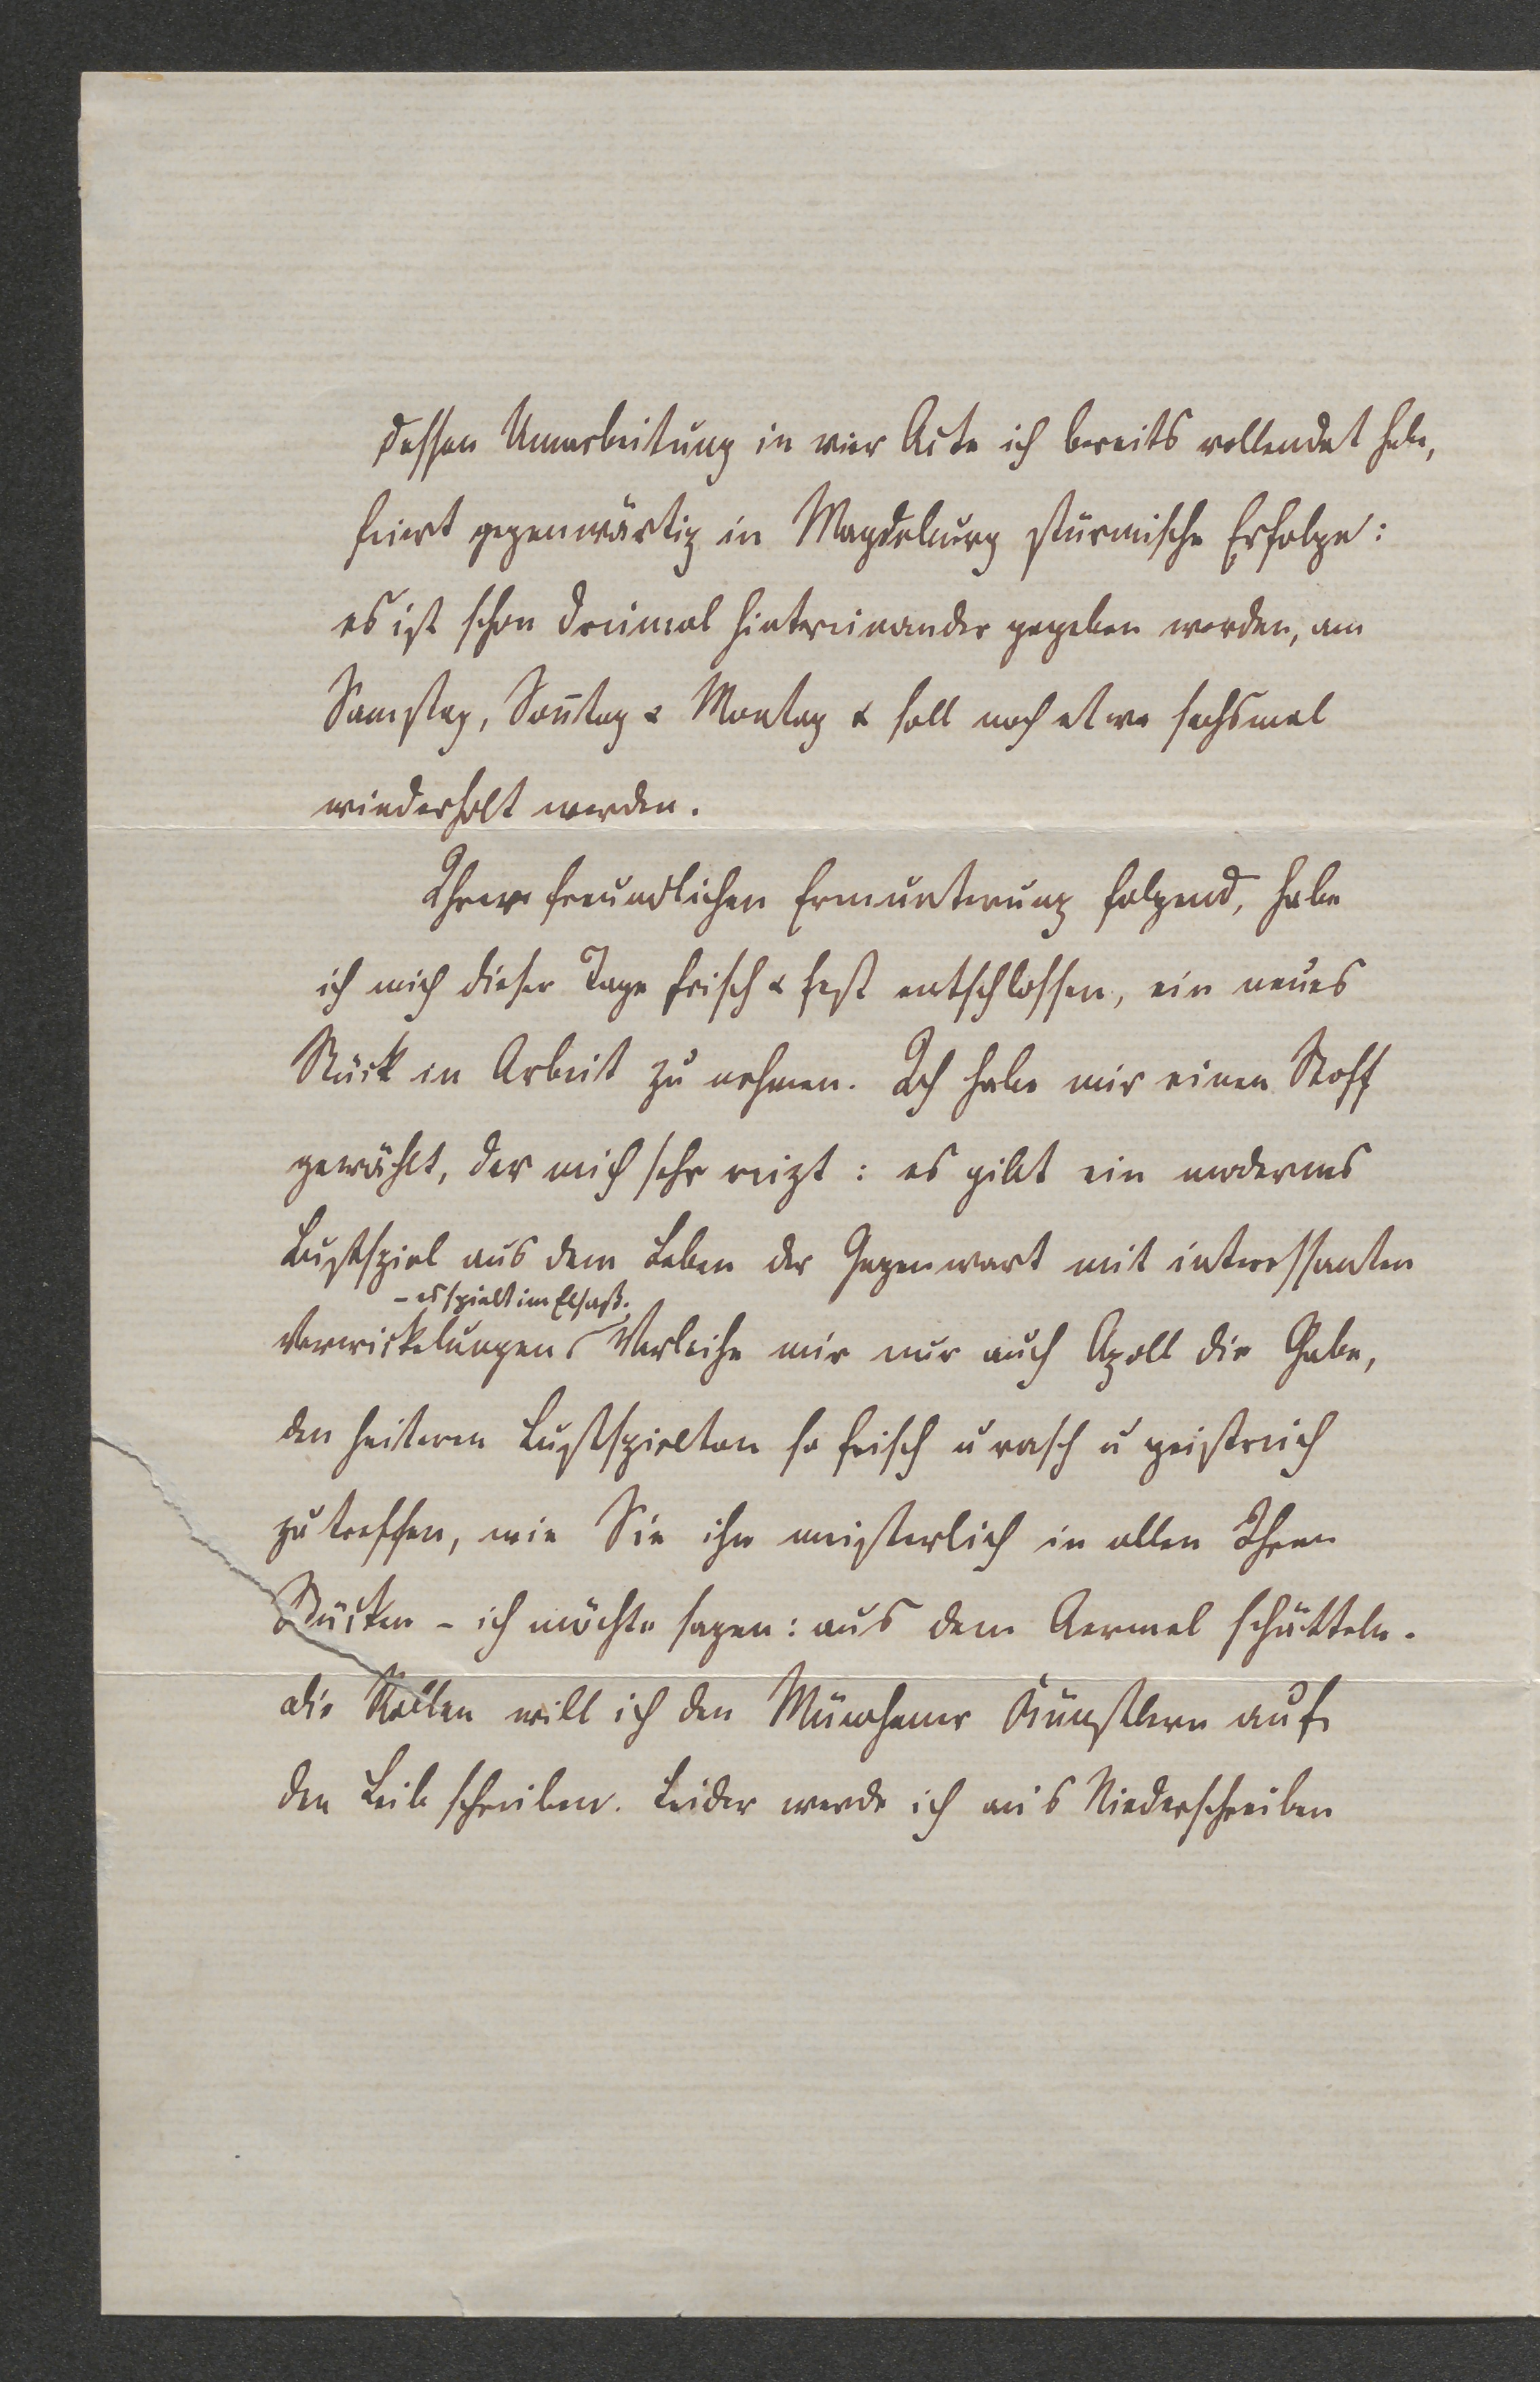 dessen Umarbeitung in vier Acte ich bereits vollendet habe,
feiert gegenwärtig in Magdeburg stürmische Erfolge:
es ist schon dreimal hintereinander gegeben worden, am
Samstag, Son̄tag & Montag & soll noch etwa sechsmal
wiederholt werden.
Ihrer freundlichen Ermunterung folgend, habe
ich mich dieser Tage frisch & fest entschlossen, ein neues
Stück in Arbeit zu nehmen. Ich habe mir einen Stoff
gewählt, der mich sehr reizt: es gibt ein modernes
Lustspiel aus dem Leben der Gegenwart mit interessanten
– es spielt im Elsaß.
Verwickelungen Verleihe mir nur auch Apoll die Gabe,
den heiteren Lustspielton so frisch u rasch u geistreich
zu treffen, wie Sie ihn meisterlich in allen Ihren
Stücken – ich möchte sagen: aus dem Aermel schütteln.
Die Rollen will ich den Münchener Künstlern auf
den Leib schreiben. Leider werde ich an's Niederschreiben